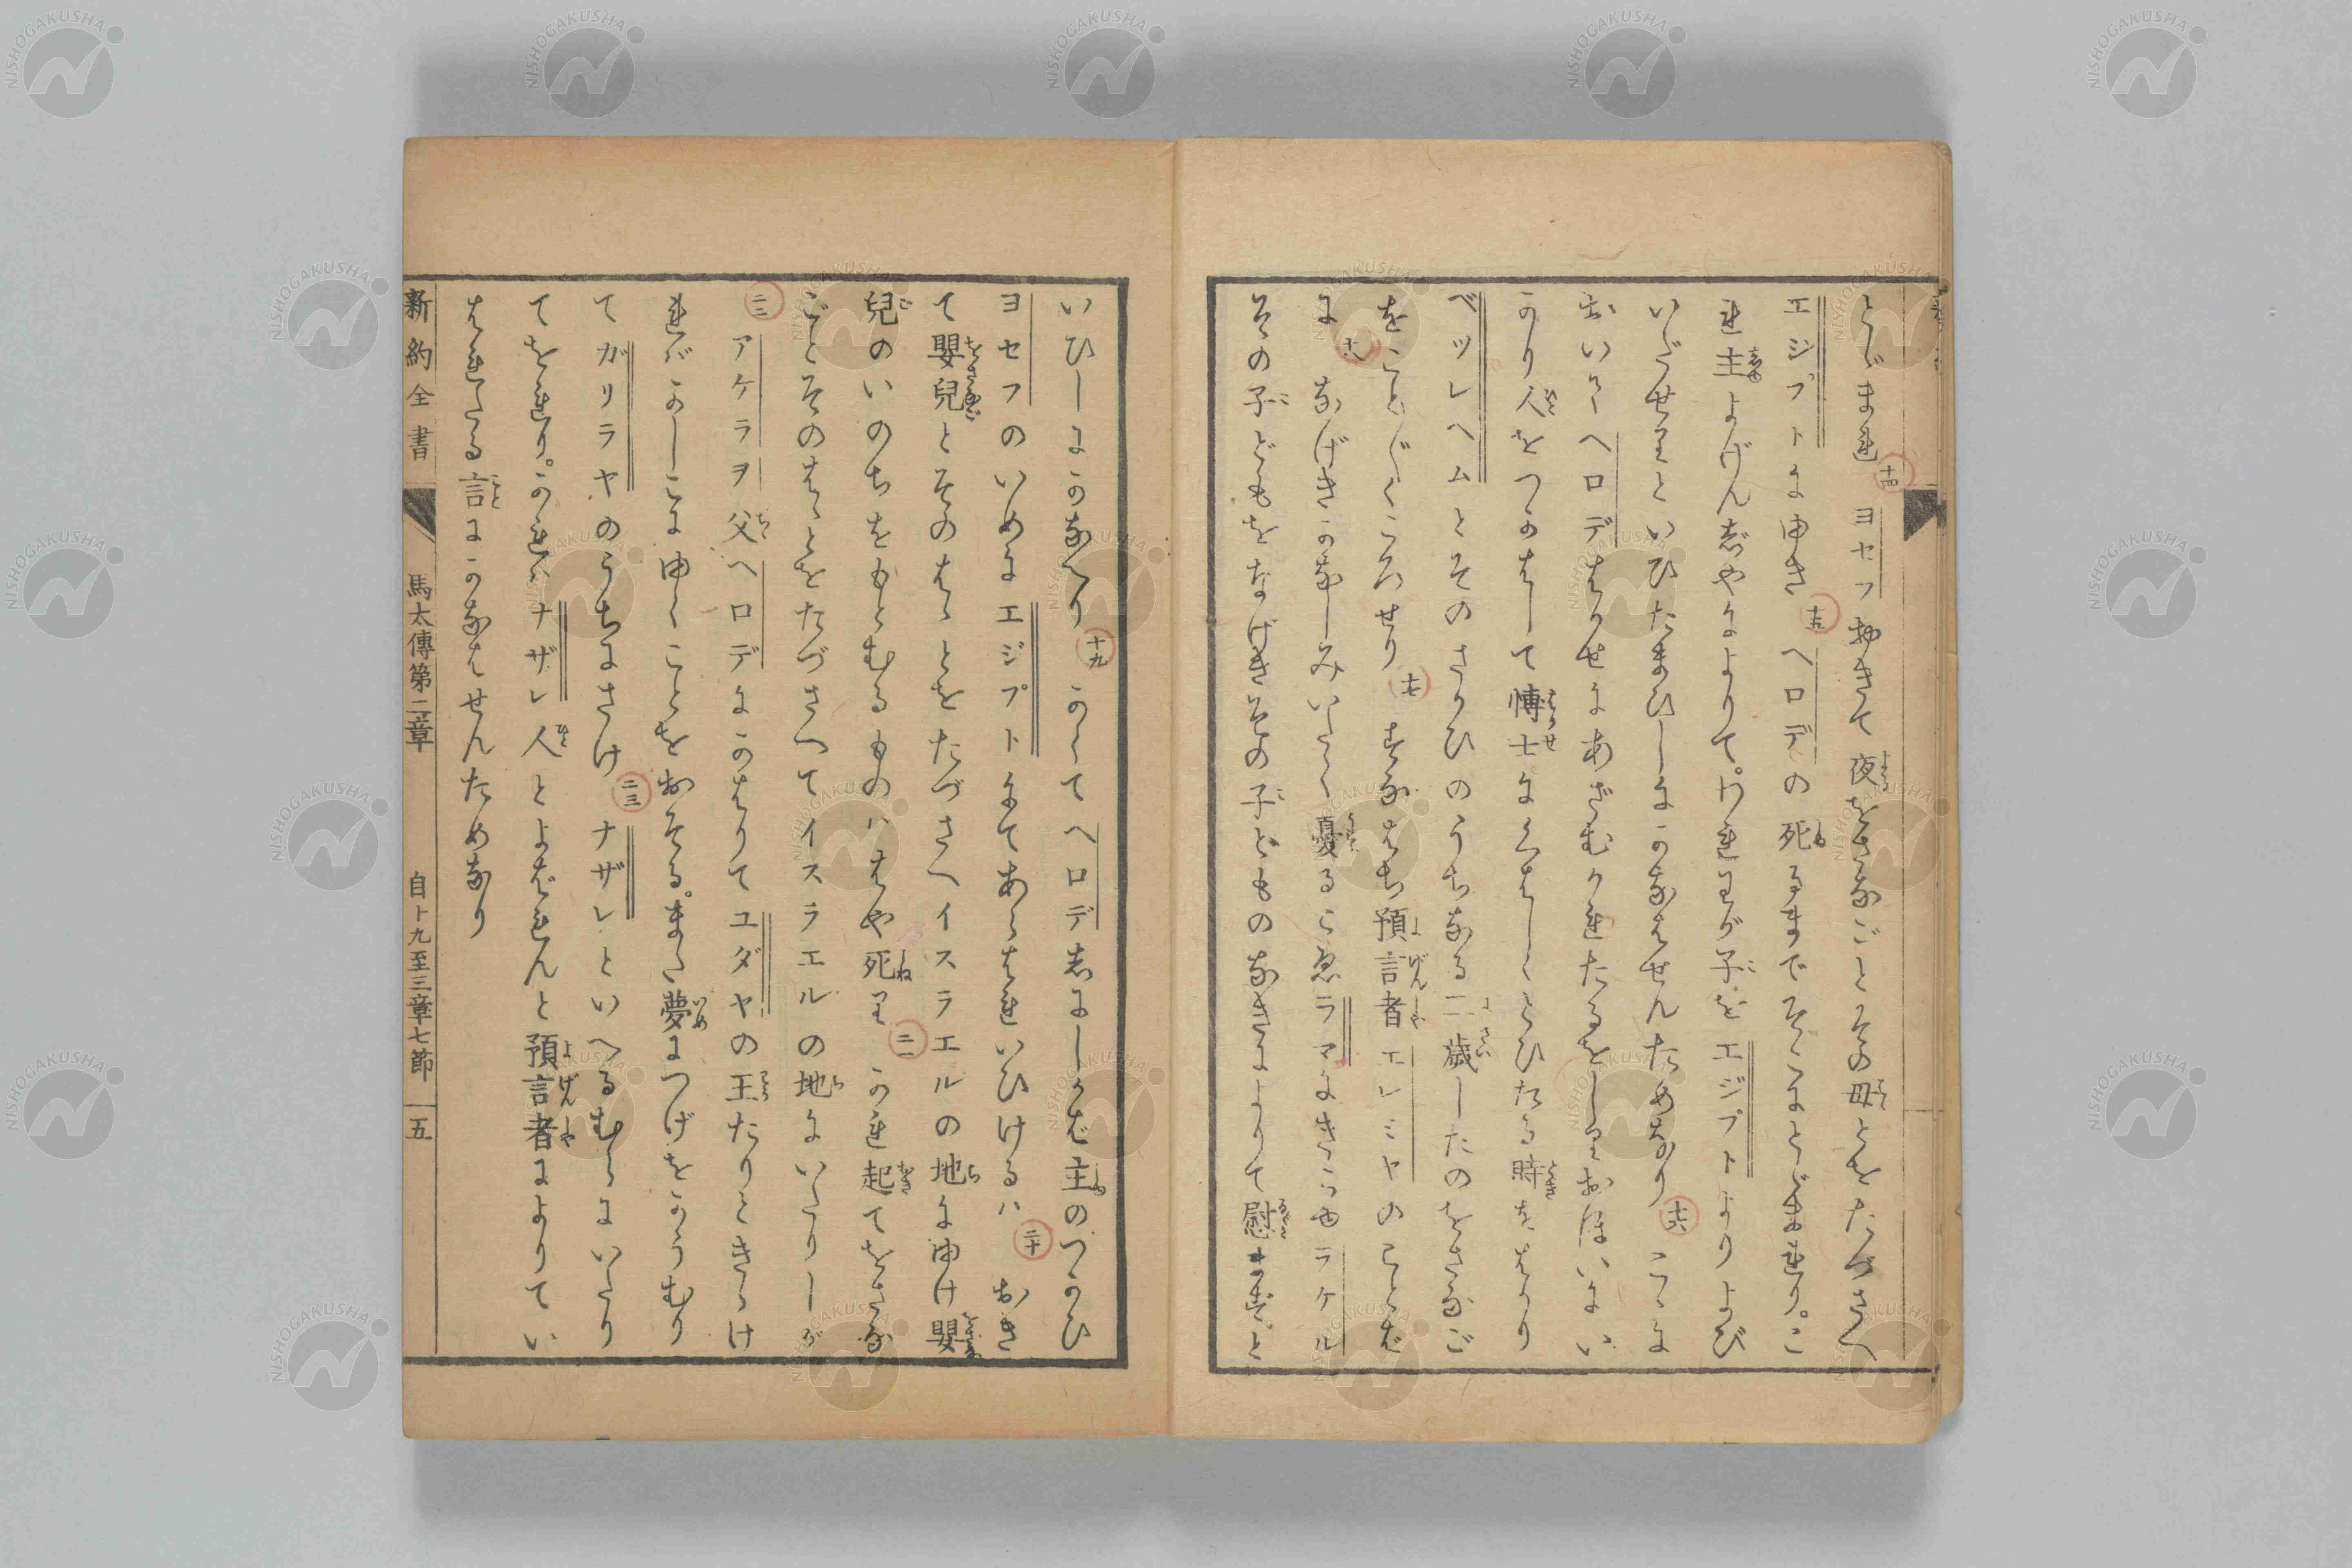 とゞまれ 十四 ヨセフおきて夜をさなごとその母とをたづさへ
エジプトにゆき 十五 ヘロデの死るまでそこにとゞまれり。こ
れ主よげんしやによりて。われわが子をエジプトよりよび
いだせりといひたまひしにかなはせんためなり 十六 こゝに
おいてヘロデはかせにあざむかれたるをしりおほいにい
かり人をつかはして博士にくはしくとひたる時をはかり
ベツレヘムとそのさかひのうちなる二歳したのをさなご
をことごとくころせり 十七 すなはち預言者エレミヤのことば
に 十八 なげきかなしみいたく憂るこゑラマにきこゆラケル
その子どもをなげきその子どものなきによりて慰まずと
いひしにかなへり 十九 かくてヘロデしにしかば主のつかひ
ヨセフのいめにエジプトにてあらはれいひけるハ 二十 おき
て嬰兒とそのはゝとをたづさへイスラエルの地にゆけ嬰
兒のいのちをもとむるものハはや死り 二一 かれ起てをさな
ごとそのはゝとをたづさへてイスラエルの地にいたりしが
二二 アケラヲ父ヘロデにかはりてユダヤの王たりときゝけ
ればかしこにゆくことをおそる。また夢につげをかうむり
てガリラヤのうちにさけ 二三 ナザレといへるむらにいたり
てをれり。かれハナザレ人とよばれんと預言者によりてい
はれたる言にかなはせんためなり
新約全書 馬太傳第二章 自十九至三章七節 五